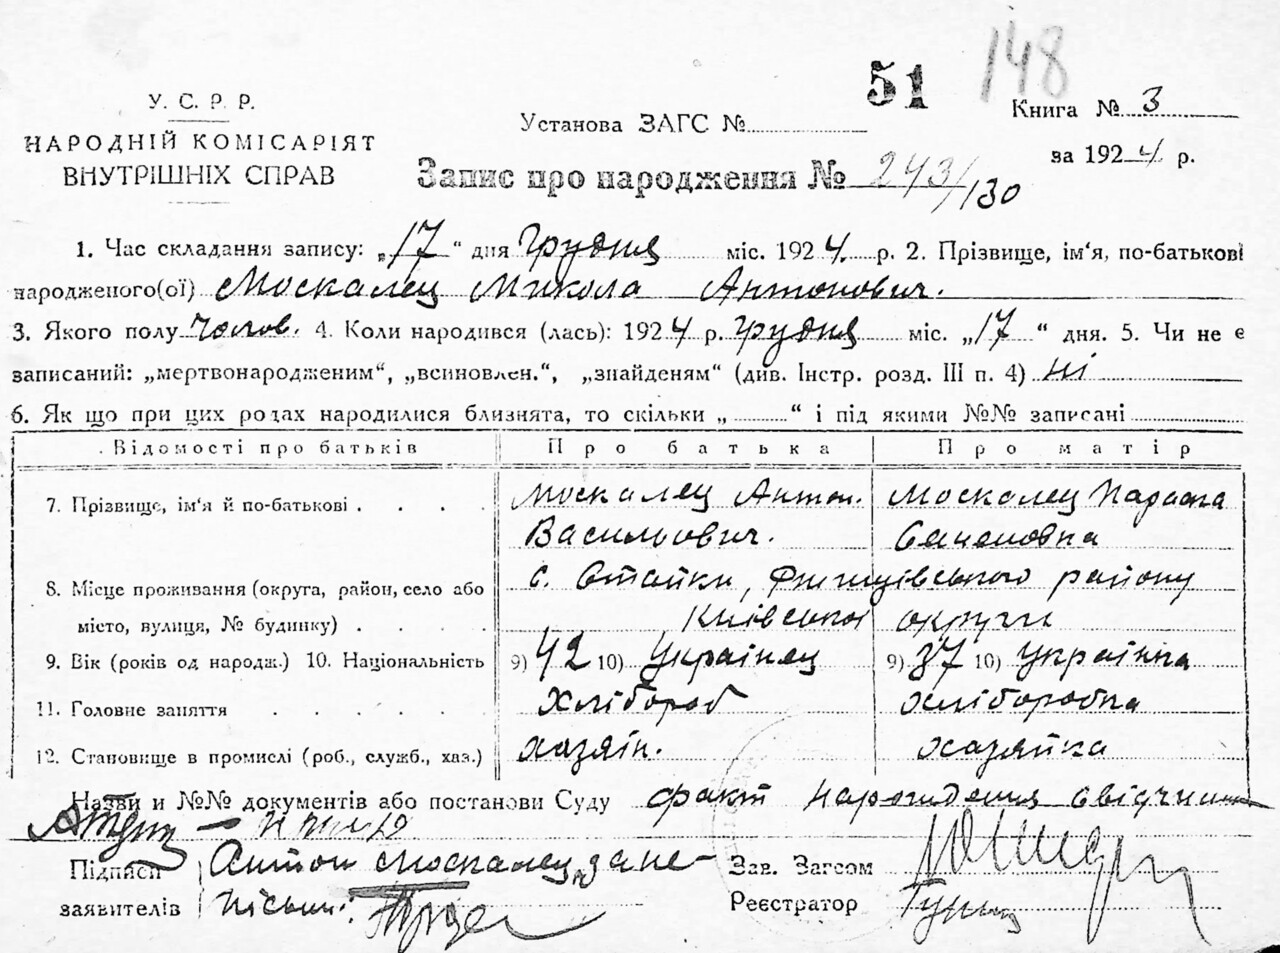 51 148
У. С. Р. Р.
НАРОДНІЙ КОМІСАРІЯТ
ВНУТРІШНІХ СПРАВ
Установа ЗАГС №
Книга № 3
за 1924 р.
Запис про народження № 243/130
1. Час складання запису: „17“ дня Грудня міс. 1924. р. 2. Прізвище, ім'я, по-батькові
народженого(ої) Москалец Микола Антонович.
3. Якого полу чолов. 4. Коли народився (лась): 1924 р. грудня міс. „17“ дня. 5. Чи не є
записаний: „мертвонародженим“, „всиновлен.“, „знайденям“ (див. Інстр. розд. III п. 4) ні
6. Як що при цих родах народилися близнята, то скільки „ “ і під якими №№ записані
Відомості про батьків Про батька Про матір
7. Прізвище, ім'я й по-батькові Москалец Антон Москалец Параска
Васильович. Семеновна
8. Місце проживання (округа, район, село або с. Стайки, Ржищівського району
місто, вулиця, № будинку) Київської округи
9. Вік (років од народж.) 10. Національність 9) 42 10) Українец 9) 37 10) українка
11. Головне заняття Хлібороб хліборобка
12. Становище в промислі (роб., служб., хаз.) хазяін. хазяйка
Назви и №№ документів або постанови Суду факт народження свідчить
Підписи Антон Москалец, за не-
заявителів пісьмен.
Зав. Загсом
Реєстратор